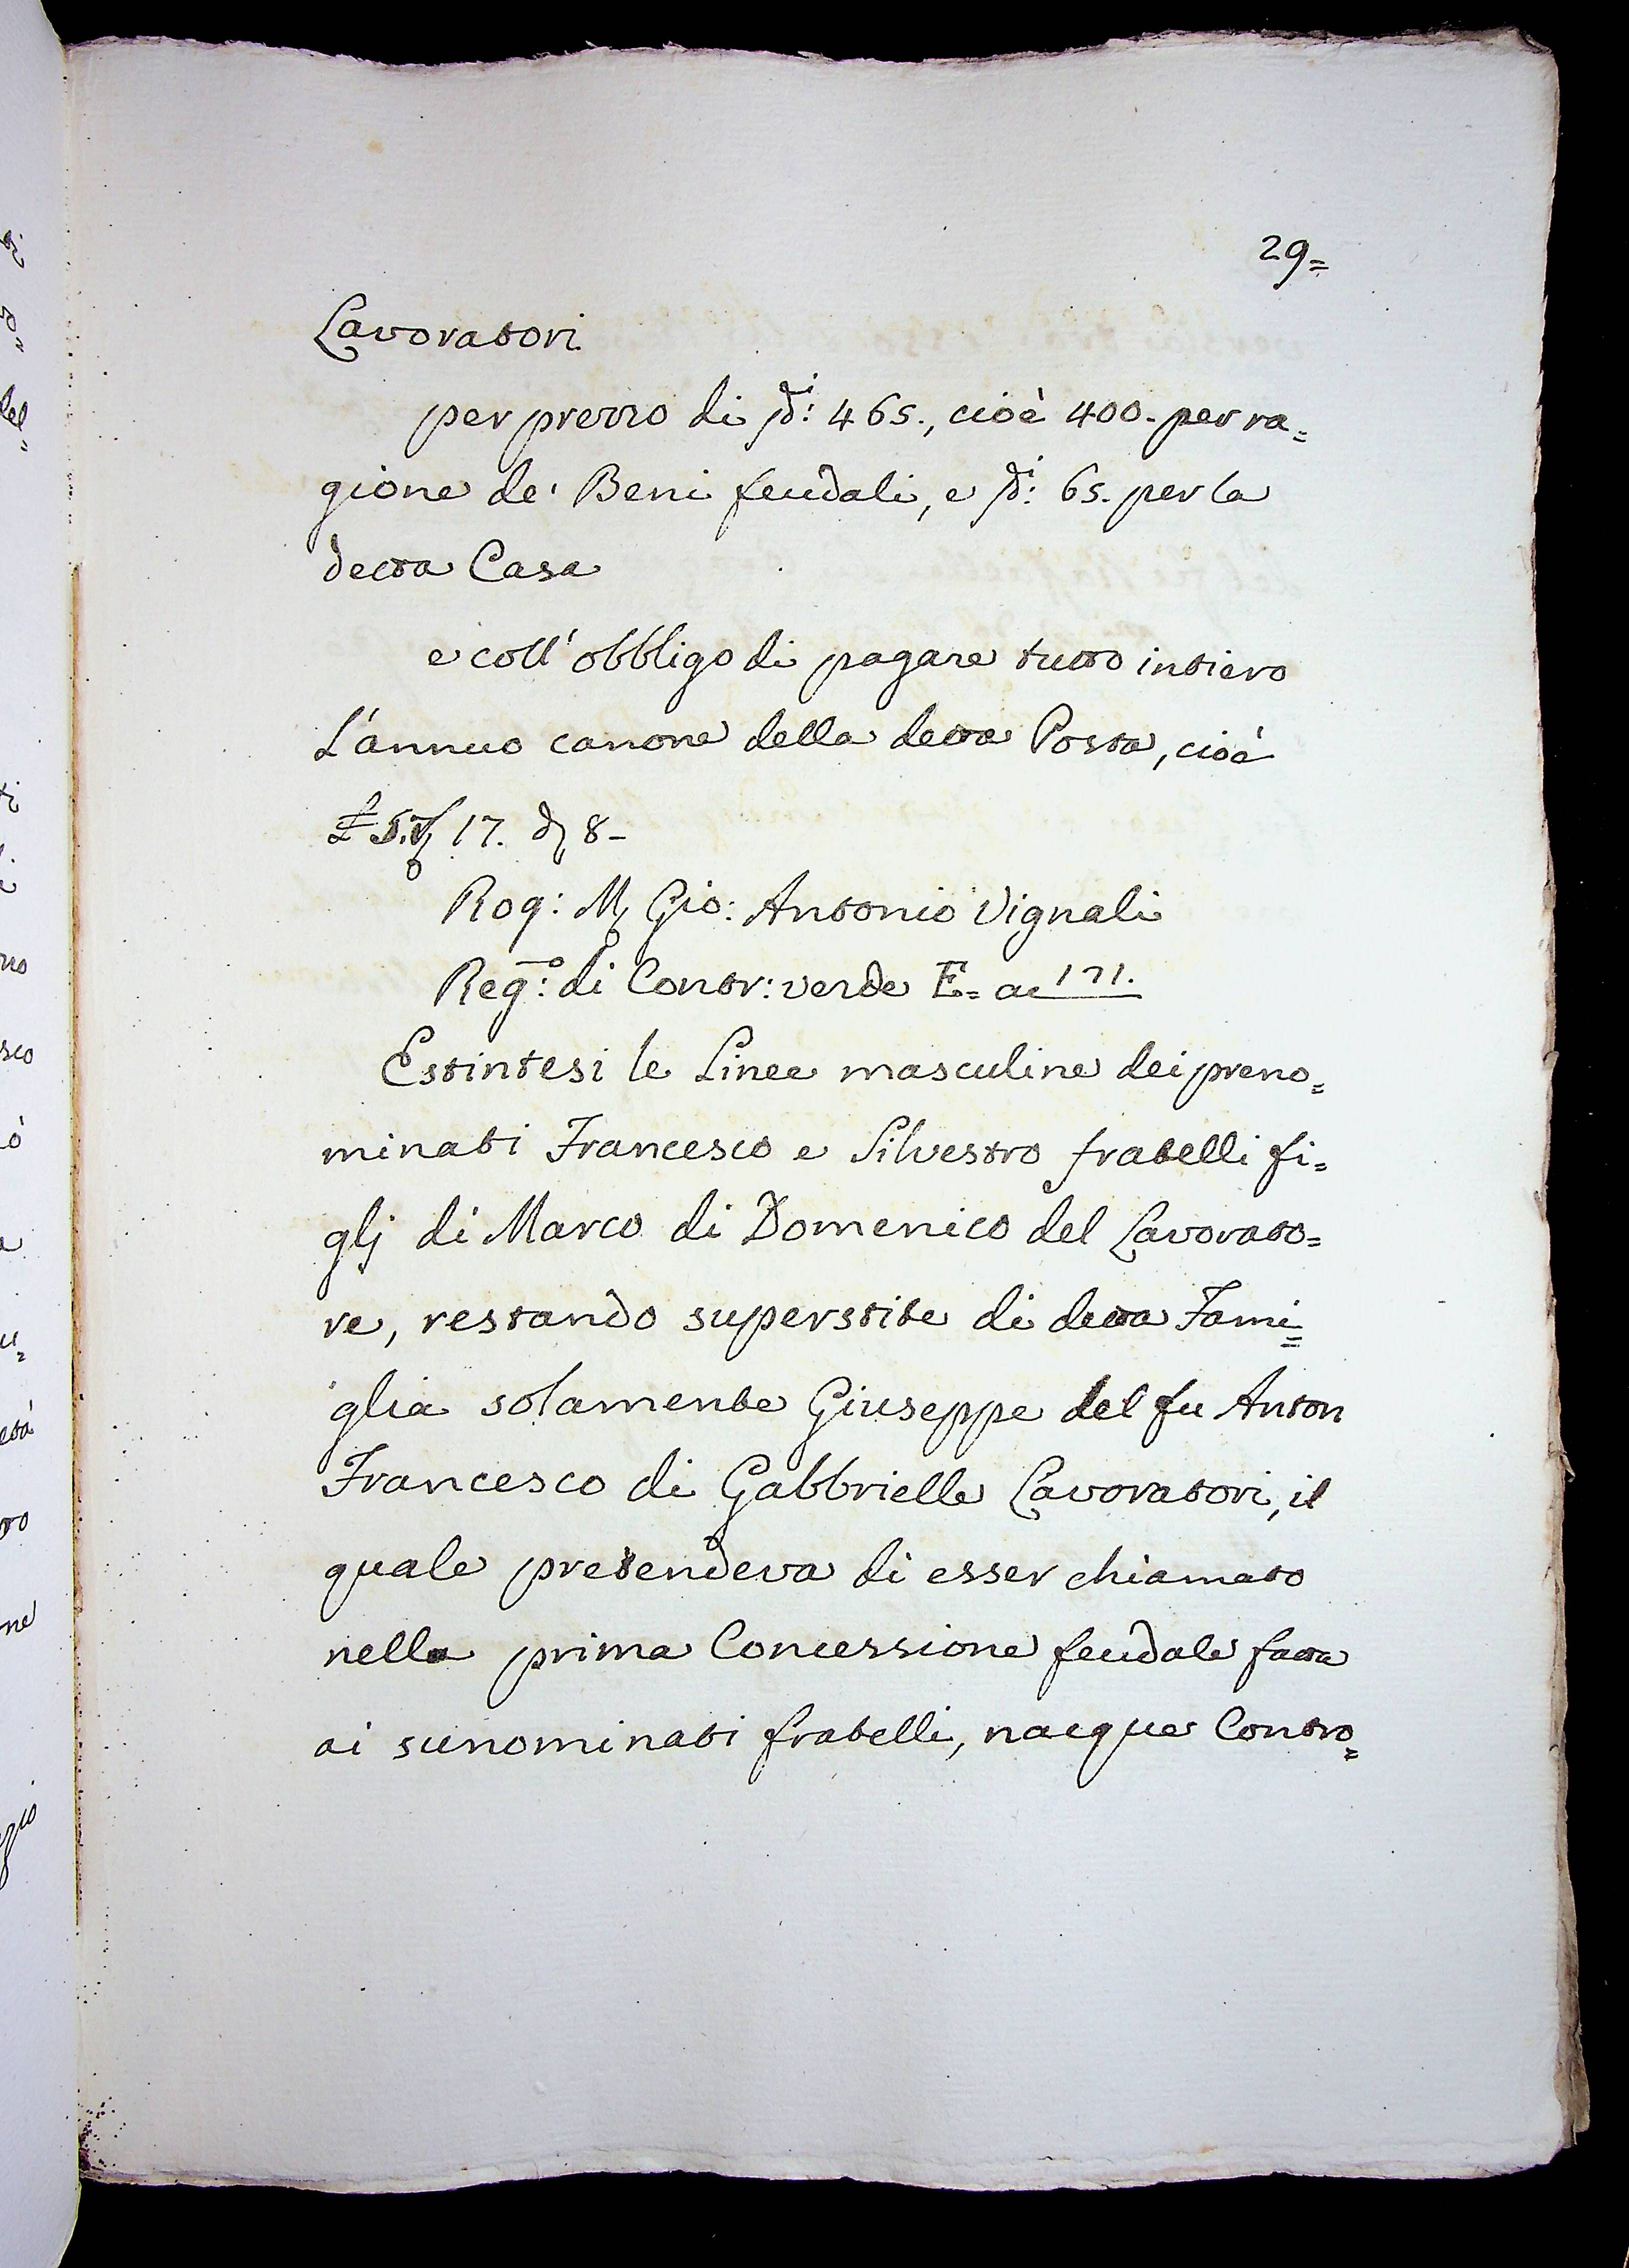 29=
Lavoratori
per prezzo di di: 465., cioè 400. per ra=
gione de' Beni feudali, e di: 65. per la
detta Casa
e coll' obbligo di pagare tutto intiero
L'annuo canone della detta Posta, cioè
£ 5. 17. 8-
Rog: M Gio: Antonio Vignali
Reg:o di Contr: verde E= ac 171.
Estintesi le Linee masculine dei preno=
minati Francesco e Silvestro fratelli fi=
glj di Marco di Domenico del Lavorato=
re, restando superstite di detta Fami=
glia solamente Giuseppe del fu Anton
Francesco di Gabbrielle Lavoratori, il
quale pretendeva di esser chiamato
nella prima Concessione feudale fatta
ai sunominati fratelli, nacque Contro=